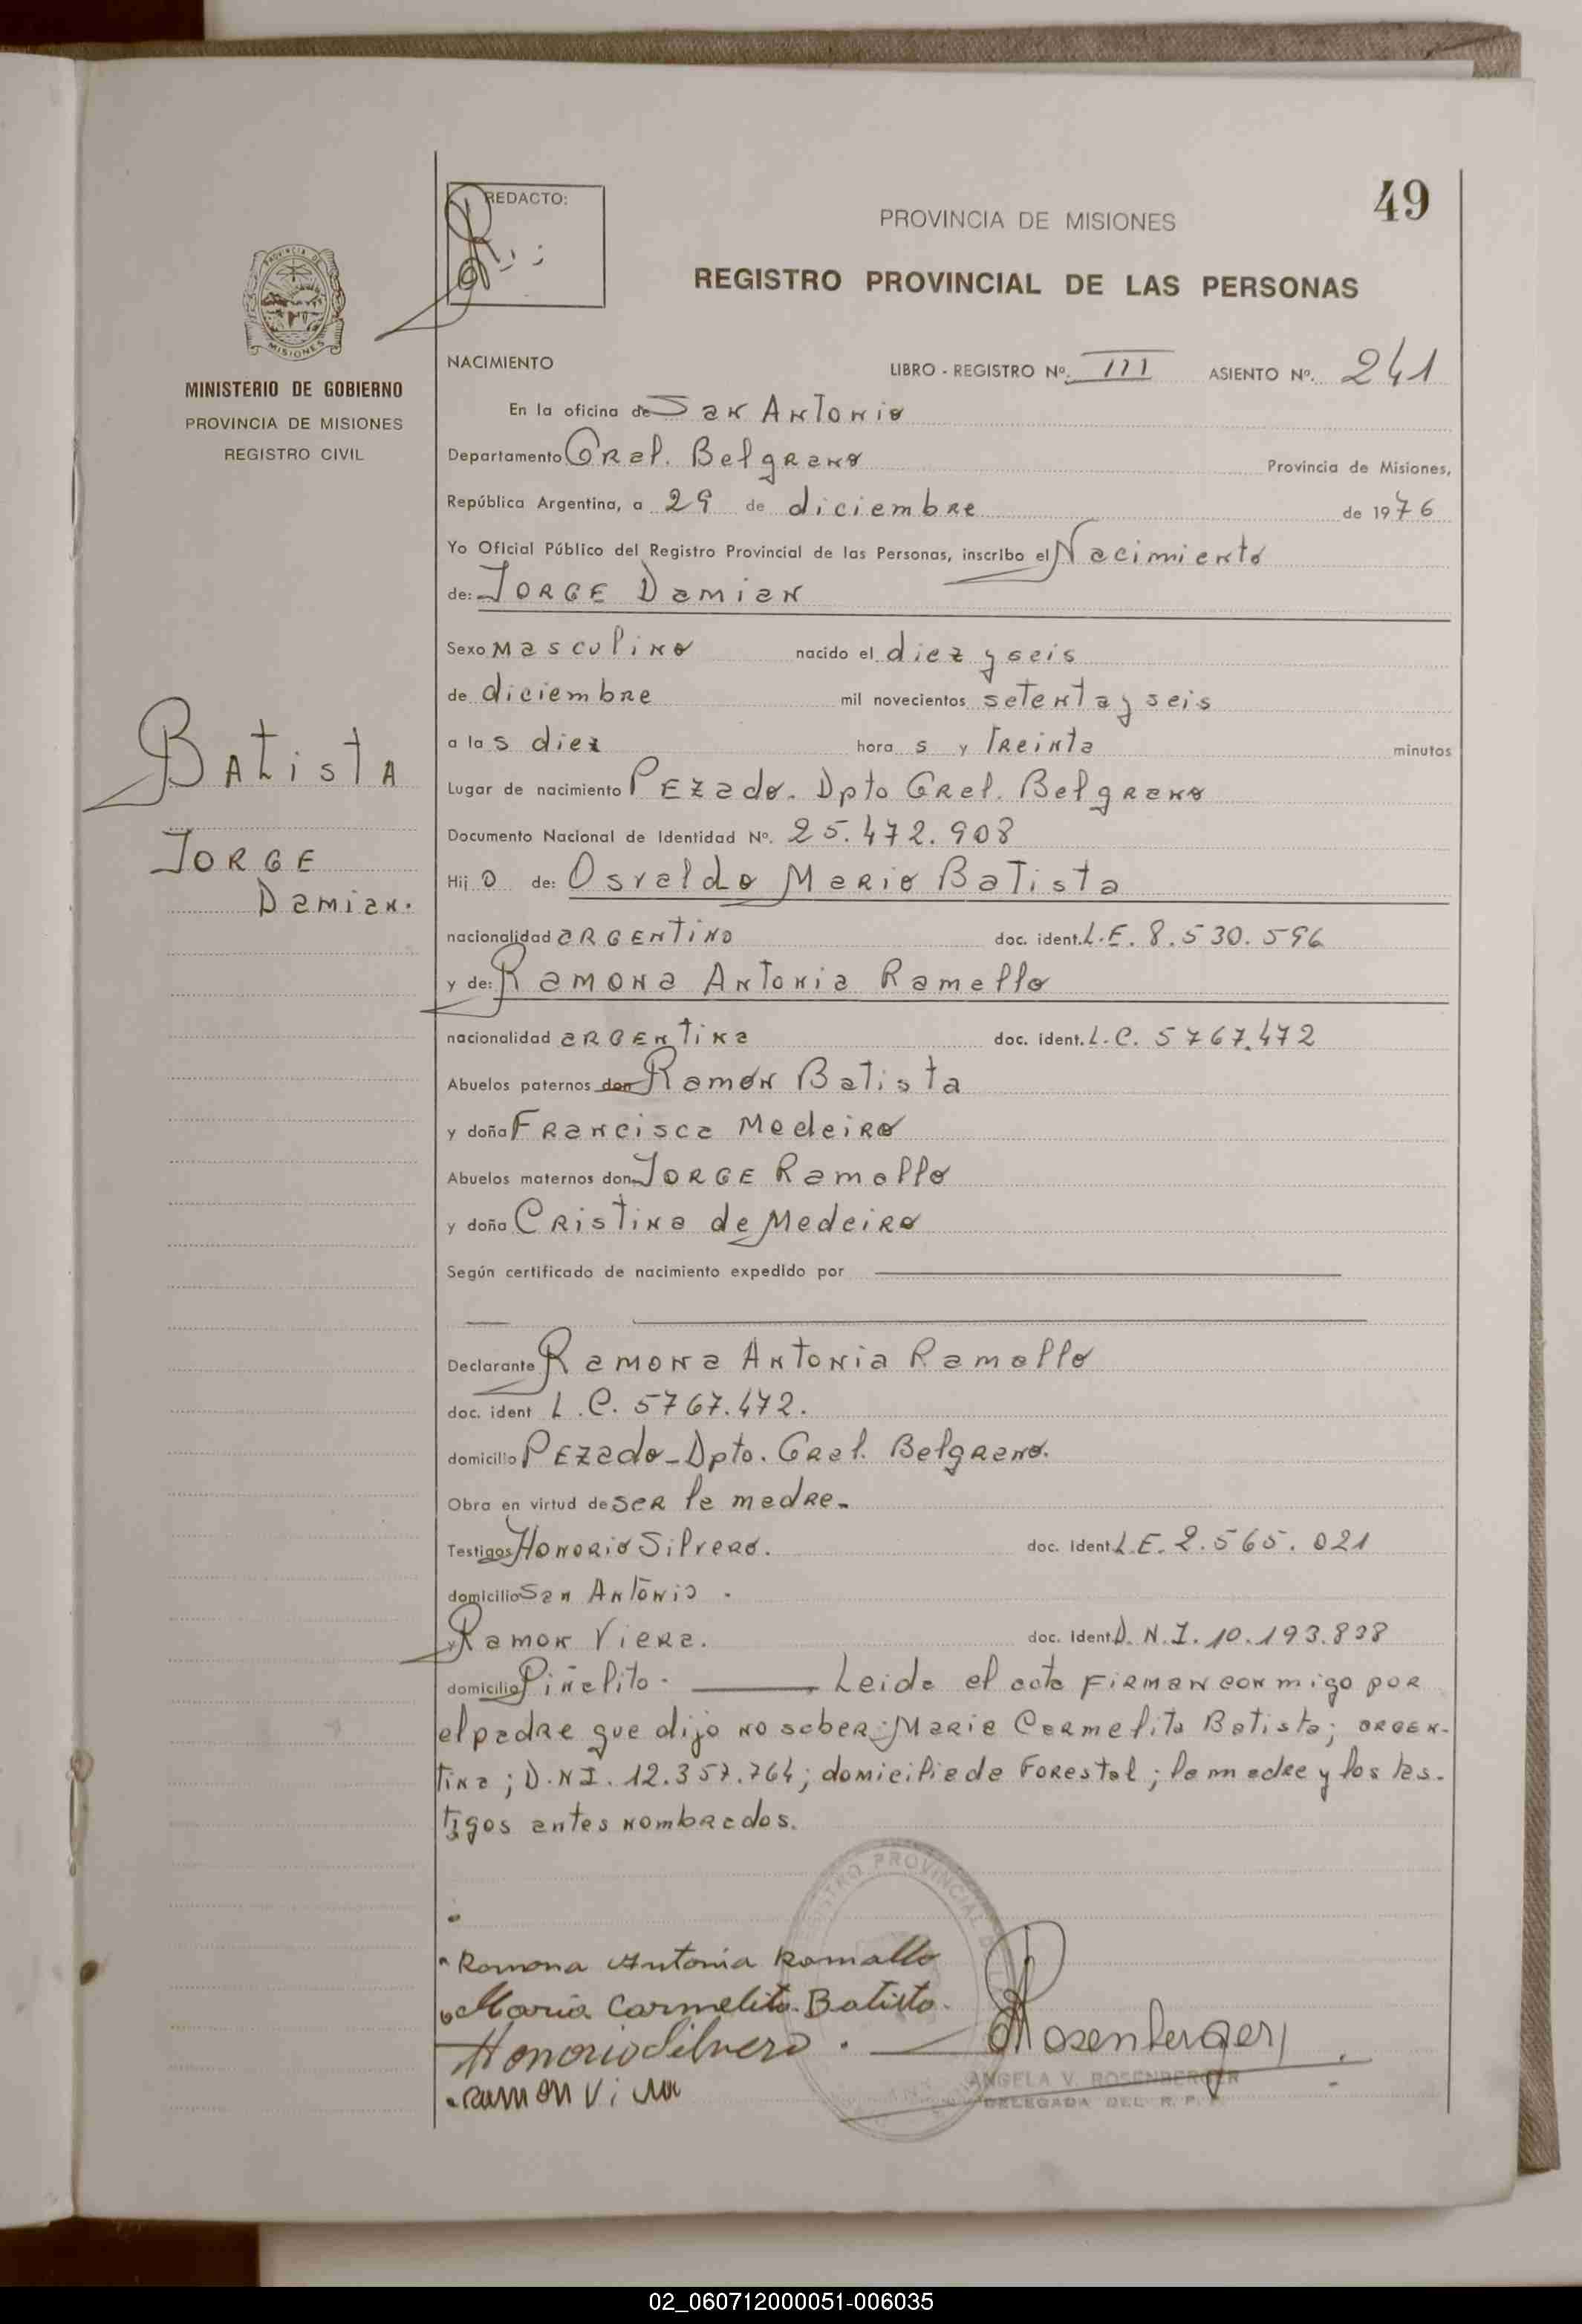 49
REDACTO:
PROVINCIA DE MISIONES
REGISTRO PROVINCIAL DE LAS PERSONAS
PROVINCIA DE
MISIONES
MINISTERIO DE GOBIERNO
PROVINCIA DE MISIONES
REGISTRO CIVIL
NACIMIENTO LIBRO - REGISTRO Nº. III ASIENTO Nº. 241
En la oficina de San Antonio
Departamento Gral. Belgrano Provincia de Misiones,
República Argentina, a 29 de diciembre de 1976
Yo Oficial Público del Registro Provincial de las Personas, inscribo el Nacimiento
de: Jorge Damian
Sexo masculino nacido el diez y seis
de diciembre mil novecientos setenta y seis
a las diez horas y Treinta minutos
Batista
Jorge
Damian.
Lugar de nacimiento Pezado. Dpto Gral. Belgrano
Documento Nacional de Identidad Nº. 25.472.908
Hijo de: Osvaldo Mario Batista
nacionalidad argentino doc. ident. L.E. 8.530.596
y de: Ramona Antonia Ramallo
nacionalidad argentina doc. ident. L.C. 5767.472
Abuelos paternos don Ramón Batista
y doña Francisca Medeiro
Abuelos maternos don Jorge Ramallo
y doña Cristina de Medeiro
Según certificado de nacimiento expedido por
Declarante Ramona Antonia Ramallo
doc. ident L.C. 5767.472.
domicilio Pezado - Dpto. Gral. Belgrano.
Obra en virtud de ser la madre.
Testigos Honorio Silvero. doc. Ident. L.E. 2.565.021
domicilio San Antonio.
y Ramon Viera. doc. Ident. D.N.I. 10.193.838
domicilio Piñalito. Leida el acta firman conmigo por
el padre que dijo no saber: Maria Carmelita Batista; argen-
tina; D.N.I. 12.357.764; domiciliada Forestal; la madre y los tes-
tigos antes nombrados.
REGISTRO PROVINCIAL
Ramona Antonia Ramallo
Maria Carmelita Batista.
Honorio Silvero.
Rosenberger
Ramon Viera
ANGELA V. ROSENBERGER
DELEGADA DEL R. P.
02_060712000051-006035